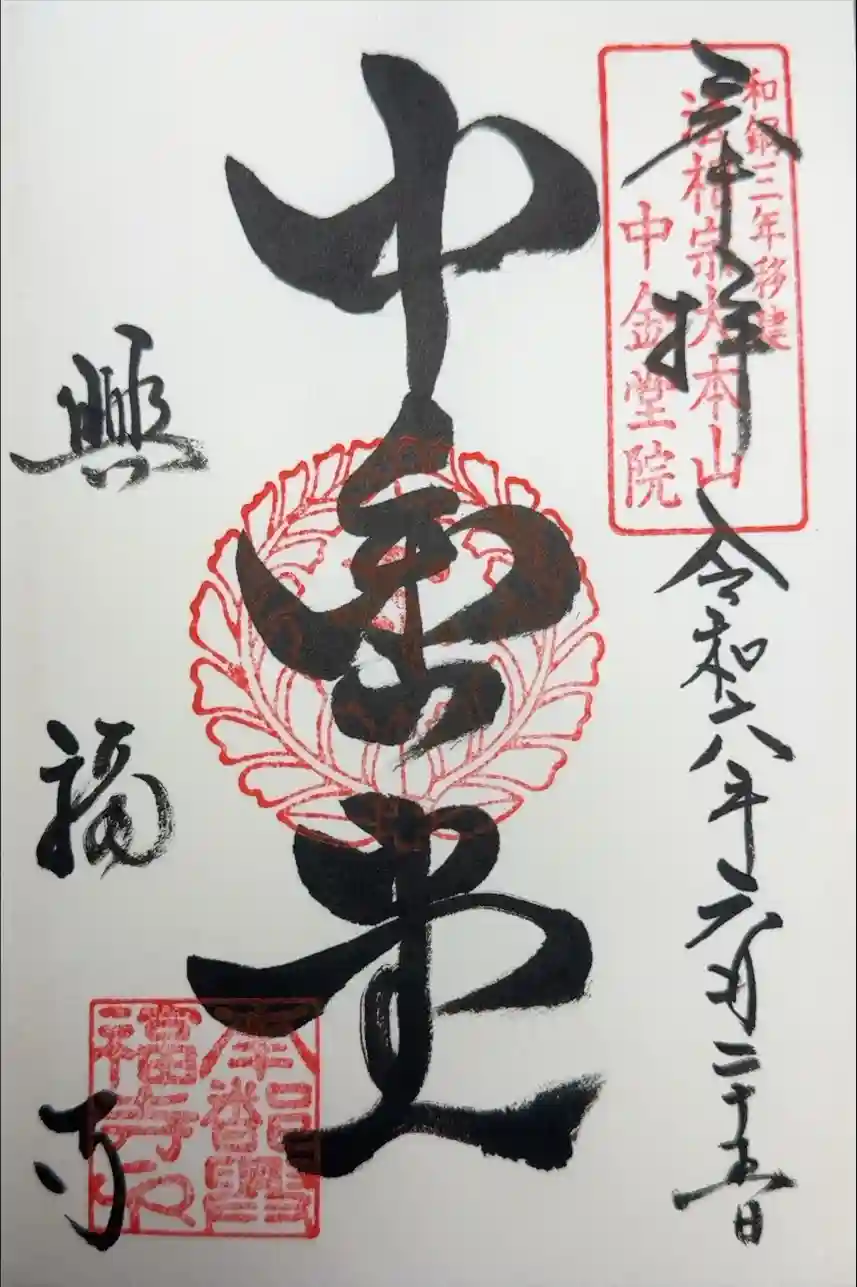 奉拝 令和六年六月二十五日
和銅三年移建
法相宗大本山
中金堂院
中金堂
興福寺
福寺印